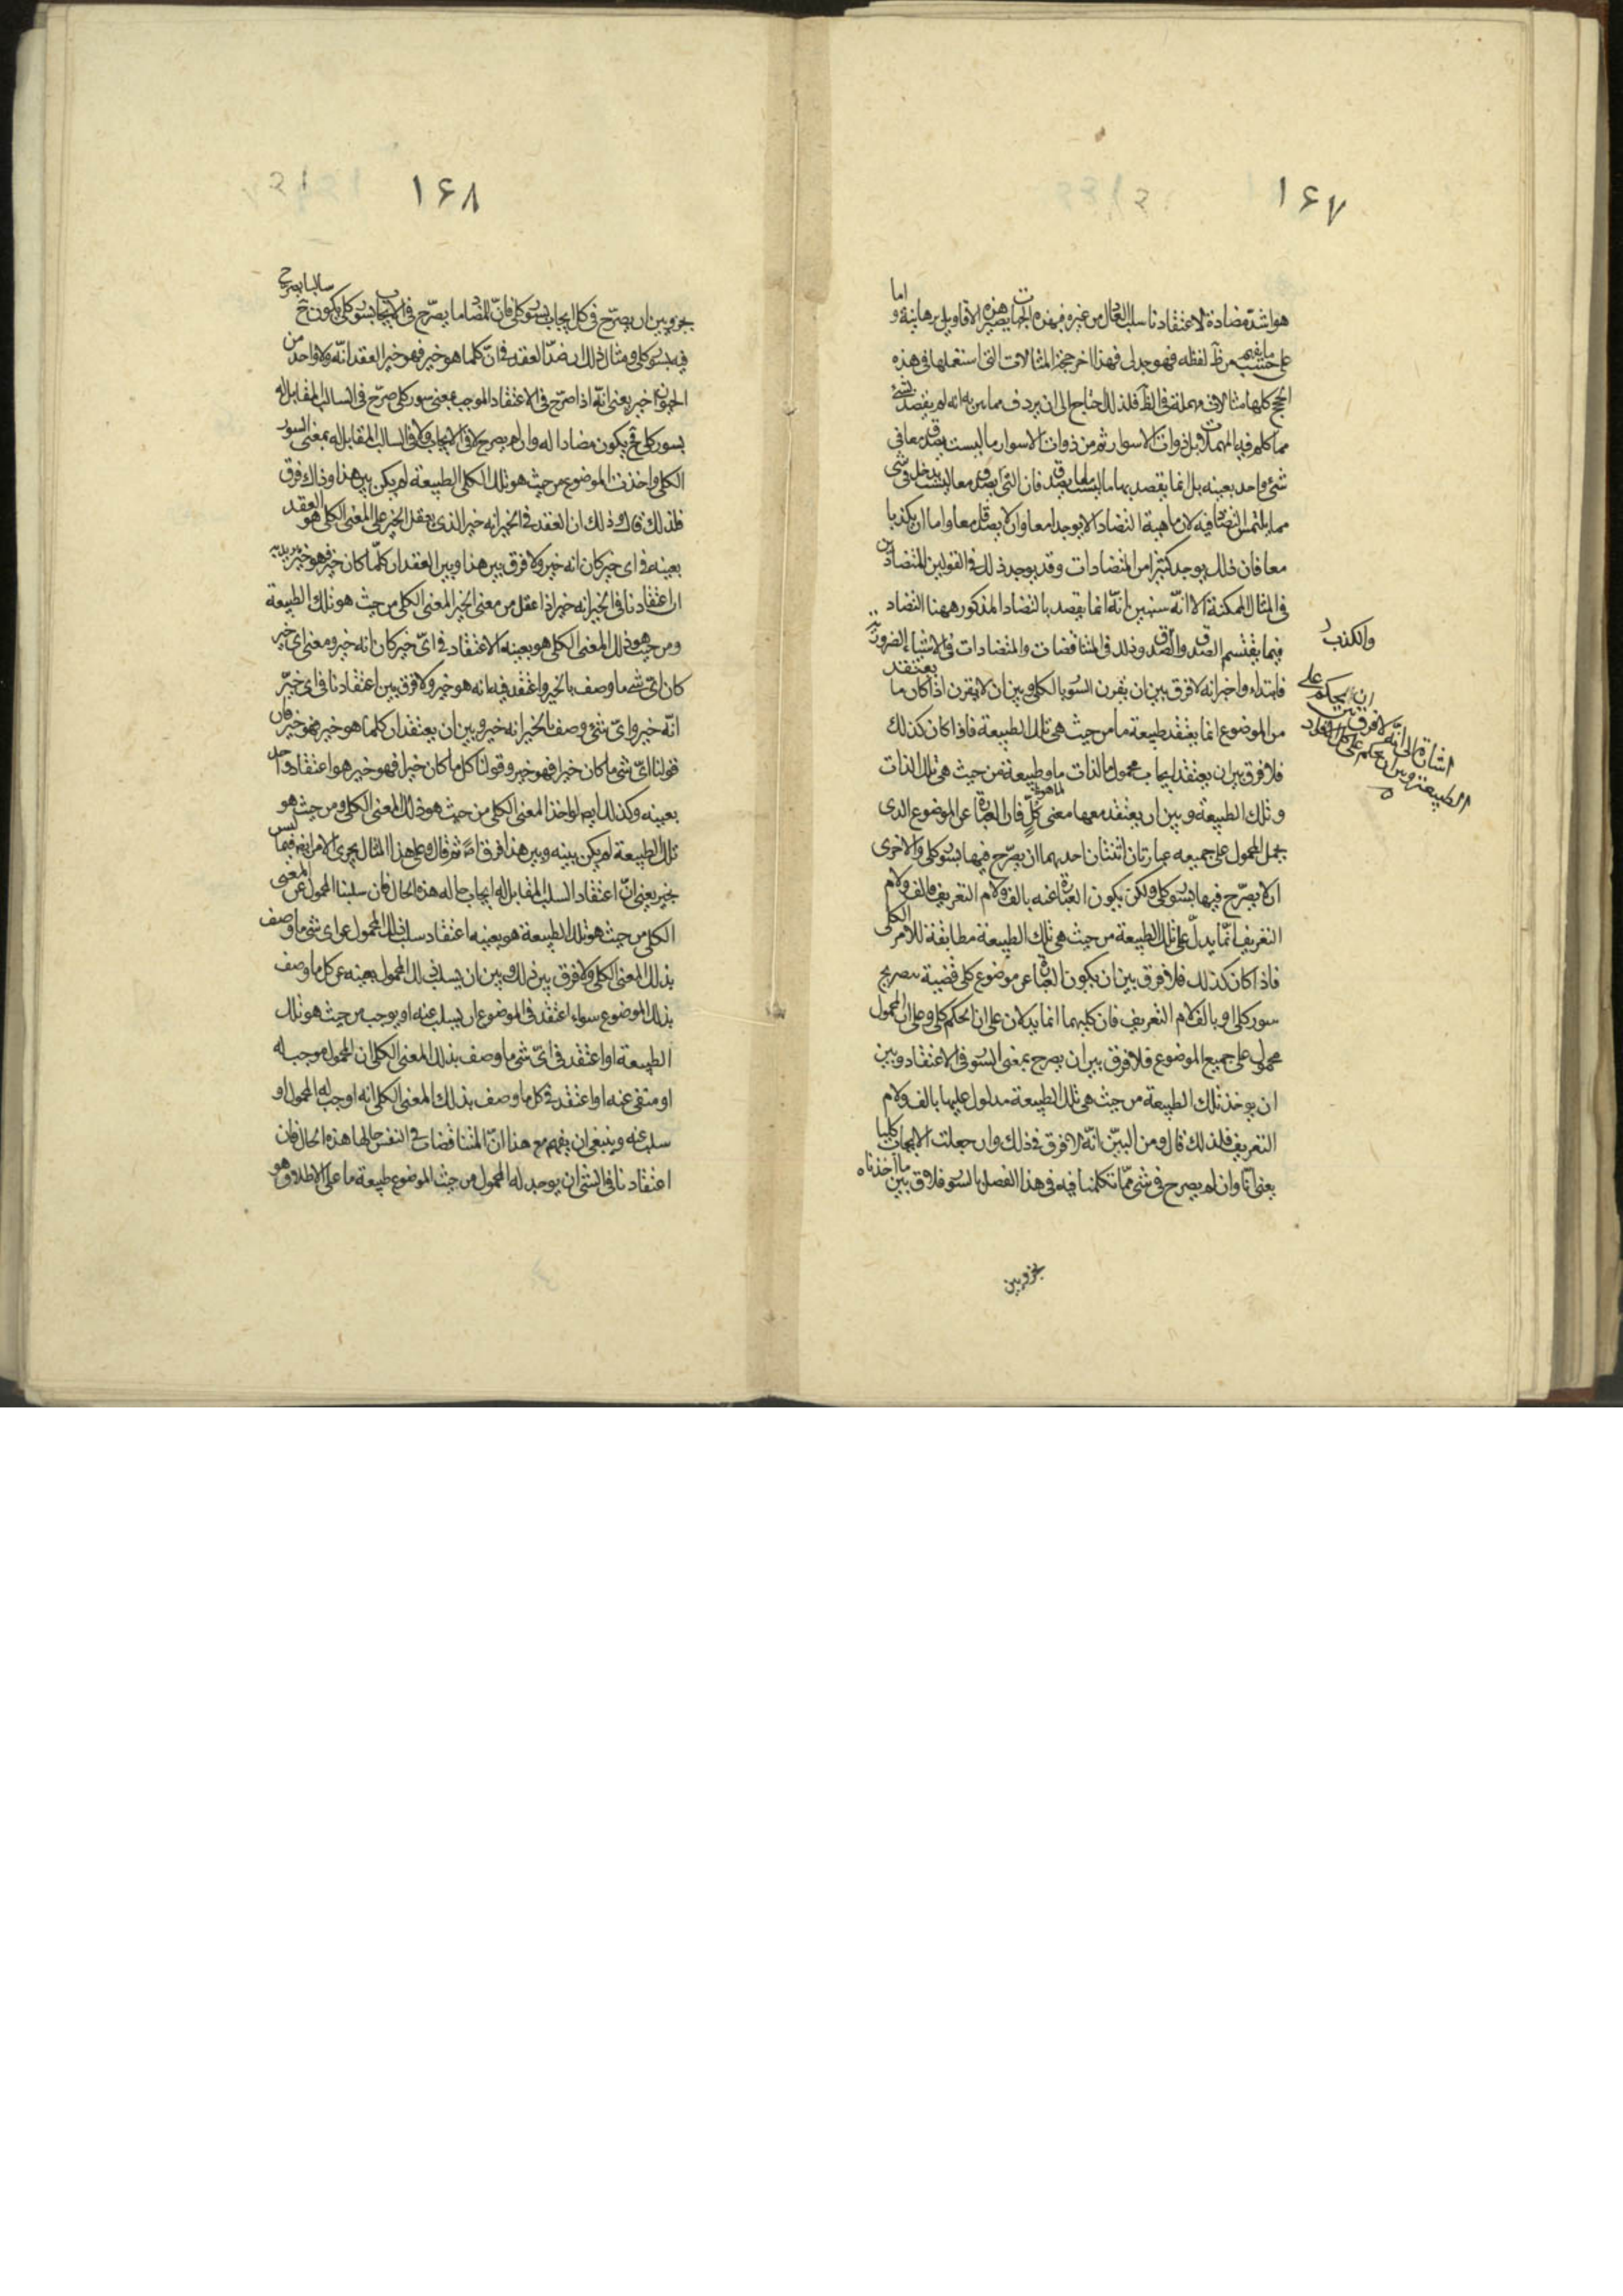 ١٦٧
هو اشد مضادة لاعتقادنا سلب العدل من غيره فبهذه الجهات يصير هذه الاقاويل برهانية و اما
على حسب ما يفهم من ظ لفظه فهو جدلى فهذا اخر حججه المثالات التى استعملها فى هذه
الحجج كلها مثالات مهملة فى الظ فلذلك احتاج الى ان يردف مما بين به انه لم يقصد لشئ
مما كلم فيه المهملات بل ذوات الاسوار ثم من ذوات الاسوار ما ليست يصدق معا فى
شئ واحد بعينه بل انما يقصد بها ما ليست يصدق فان التى يصدق معا ليست يدخل فى شئ
مما يلتمس التضاد فيه لان ماهية التضاد الا يوجدا معا وان لا يصدقا معا واما ان يكذبا
معا فان ذلك يوجد كثيرا من المتضادات وقد يوجد ذلك فى القولين المتضادين
فى المثال الممكنة الا انه سنبين انه انما يقصد بالتضاد المذكور ههنا التضاد
فيما يقتسم الصدق والكذب وذلك فى المتناقضات والمتضادات فى الاشياء الضرورية
فابتداء واخبر انه لا فرق بين ان يقرن السور بالكلى وبين ان لا يقرن اذا كان ما يعتقد
من الموضوع انما يعتقد طبيعة ما من حيث هى تلك الطبيعة فاذا كان كذلك
فلا فرق بين ان يعتقد ايجاب محمول ما لذات ما وطبيعة من حيث هى تلك الذات
وتلك الطبيعة وبين ان يعتقد معها معنى كل فان العبارة عن الموضوع الذى
يحمل المحمول على جميعه عبارتان اثنتان احديهما ان يصرح فيها بسور كلى والاخرى
ان لا يصرح فيها بسور كلى ولكن يكون العبارة عنه بالف ولام التعريف فالف ولام
التعريف انما يدل على تلك الطبيعة من حيث هى تلك الطبيعة مطابقة للامر الكلى
فاذا كان كذلك فلا فرق بين ان يكون العبارة عن موضوع كلى قضية بتصريح
سور كلى او بالف لام التعريف فان كليهما انما يدلان على ان الحكم كلى وعلى ان المحمول
محمول على جميع الموضوع فلا فرق بين ان يصرح بمعنى السور فى الاعتقاد وبين
ان يوخذ تلك الطبيعة من حيث هى تلك الطبيعة مدلول عليها بالف ولام
التعريف فلذلك قال ومن البين انه لا فرق فى ذلك وان جعلت الايجاب كليا
يعنى انا وان لم يصرح فى شئ مما تكلمنا فيه فى هذا الفصل بالسور فلا فرق بين ما اخذناه
والكذب
اشارة الى انه لا فرق بين ان يحكم على
الطبيعة وبين ان يحكم على كل الافراد
نحن وبين
١٦٨
نحن وبين ان يصرح فى كل ايجاب بسور كلى فان المضاد ما يصرح فى الايجاب بسور كلى يكون ح سالبا يصرح
فيه بسور كلى ومثال ذلك ان ضد العقد فى ان كلما هو خير فهو خير العقد انه ولا واحد من
الخيرات خير يعنى انه اذا صرح فى الاعتقاد الموجب بمعنى سور كلى صرح فى السالب المقابل له
بسور كلى ح يكون مضادا له وان لم يصرح لا فى الايجاب ولا فى السالب المقابل له بمعنى السور
الكلى واخذت الموضوع من حيث هو تلك الكلى الطبيعة لم يكن بين هذا وذاك فرق
فلذلك قال وذلك ان العقد فى الخير انه خير الذى يعقل الخير على المعنى الكلى هو العقد
بعينه فى اى خير كان انه خير ولا فرق بين هذا وبين العقد ان كلما كان خير فهو خير يريد به
ان اعتقادنا فى الخير انه خير اذا عقل من معنى الخير المعنى الكلى من حيث هو تلك الطبيعة
ومن حيث هو ذلك المعنى الكلى هو بعينه الاعتقاد فى اى خير كان انه خير ومعنى اى خير
كان اى شئ ما وصف بالخير واعتقد فيه انه هو خير ولا فرق بين اعتقادنا فى اى خير
انه خير واى شئ وصف بالخير انه خير وبين ان يعتقد ان كلما هو خير فهو خير فان
قولنا اى شئ ما كان خيرا فهو خير وقولنا كل ما كان خيرا فهو خير هو اعتقاد واحد
بعينه وكذلك ايضا لو اخذ المعنى الكلى من حيث هو ذلك المعنى الكلى ومن حيث هو
تلك الطبيعة لم يكن بينه وبين هذا فرق ثم قال وعلى هذا المثال يجرى الامر ايضا فيما ليس
بخير يعنى ان اعتقاد السلب المقابل له ايجاب حاله هذه الحال فان سلبنا المحمول عن المعنى
الكلى من حيث هو تلك الطبيعة هو بعينه اعتقاد سلب ذلك المحمول عن اى شئ ما وصف
بذلك المعنى الكلى ولا فرق بين ذلك وبين ان يسلب ذلك المحمول بعينه عن كل ما وصف
بذلك الموضوع سواء اعتقد فى الموضوع ان يسلب عنه او يوجب من حيث هو تلك
الطبيعة او اعتقد فى اى شئ ما وصف بذلك المعنى الكلى ان المحمول موجب له
او منفى عنه او اعتقد فى كل ما وصف بذلك المعنى الكلى انه اوجب له المحمول او
سلب عنه وينبغى ان يفهم مع هذا ان المتناقضات فى النفس حالها هذه الحال فان
اعتقادنا فى الشئ ان يوجد له المحمول من حيث الموضوع طبيعة ما على الاطلاق هو